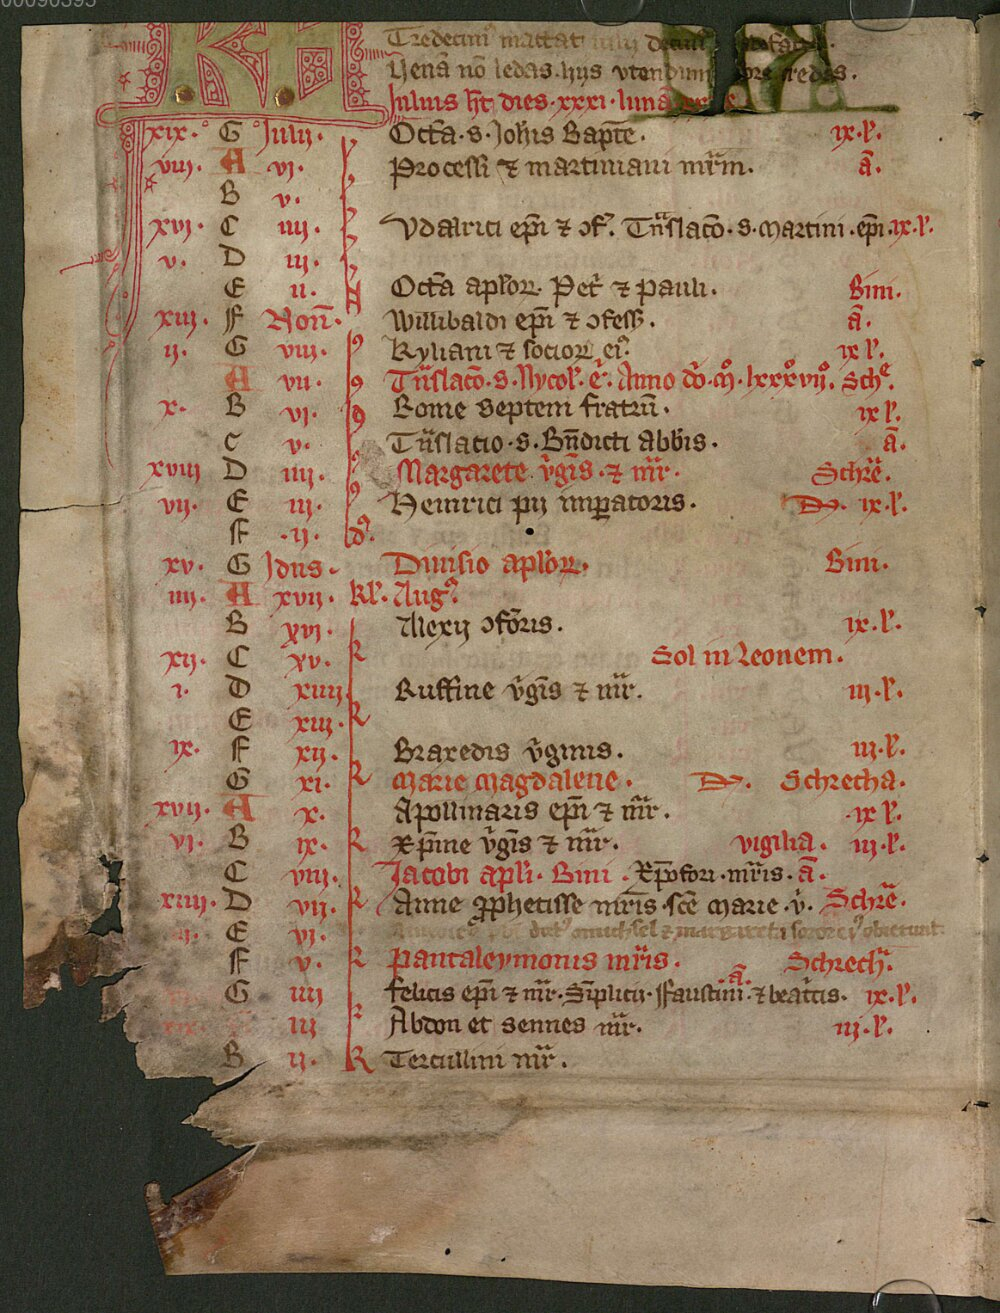 00090595
KL Tredecim mactat iulij decim
Venā nō ledas. hijs vtendum redas.
Iulius ht dies . xxxi . lunā
xix. G Iulij. Octa . s . Johis Bapte . ix . l.
viij. A vj. Processi ⁊ martiniani mrm. ā.
B v.
xvj. C iiij. Vdalrici epi ⁊ ɔf. Tnslaco . s . Martini . epi . ix . l.
v. D iij.
E ij. Octa aplor. Pet ⁊ pauli. Bini.
xiij. F Non. Willibaldi epi ⁊ ɔfess. ā.
ij. G viij. Kyliani ⁊ socior ei. ix l.
A vij. Tnslaco . s . Nycol . e . Anno do . m . lxxxvij. Sche
x. B vj. Rome septem fratru. ix l.
C v. Tnslatio . s . Bndicti abbis. ā.
xviij D iiij. Margarete vgis . ⁊ mr. Schre.
vij. E iij. Heinrici pij imperatoris. D. ix . l.
F . ij. d
xv. G Idus. Diuisio aplor. Bini.
iiij. A xvij. Kl. Aug
B xvj. Alexij ɔforis. ix . l.
xij. C xv. Sol in Leonem.
i. D xiiij. Ruffine vgis ⁊ mr. iij . l.
E xiij.
ix. F xij. Braxedis vginis. iij . l.
G xi. Marie Magdalene. D. Schrecha.
xvij. A x. Apollinaris epi ⁊ mr. ix l.
vj. B ix. Xpine vgis ⁊ mr. vigilia. iij . l.
C viij. Jacobi apli. Bini . Xpofori . mris . ā.
xiiij. D vij. Anne pphetisse mris sce Marie . v. Schre.
E vj. ⁊ margareta soror ei obierunt
F v. Pantaleymonis mris. Schrech.
G iiij Felicis epi ⁊ mr. Siplicij . Faustini . ⁊ beatcis. ā. ix . l.
xix. iij Abdon et sennes mr. iij . l.
B ij. Tercullini mr.